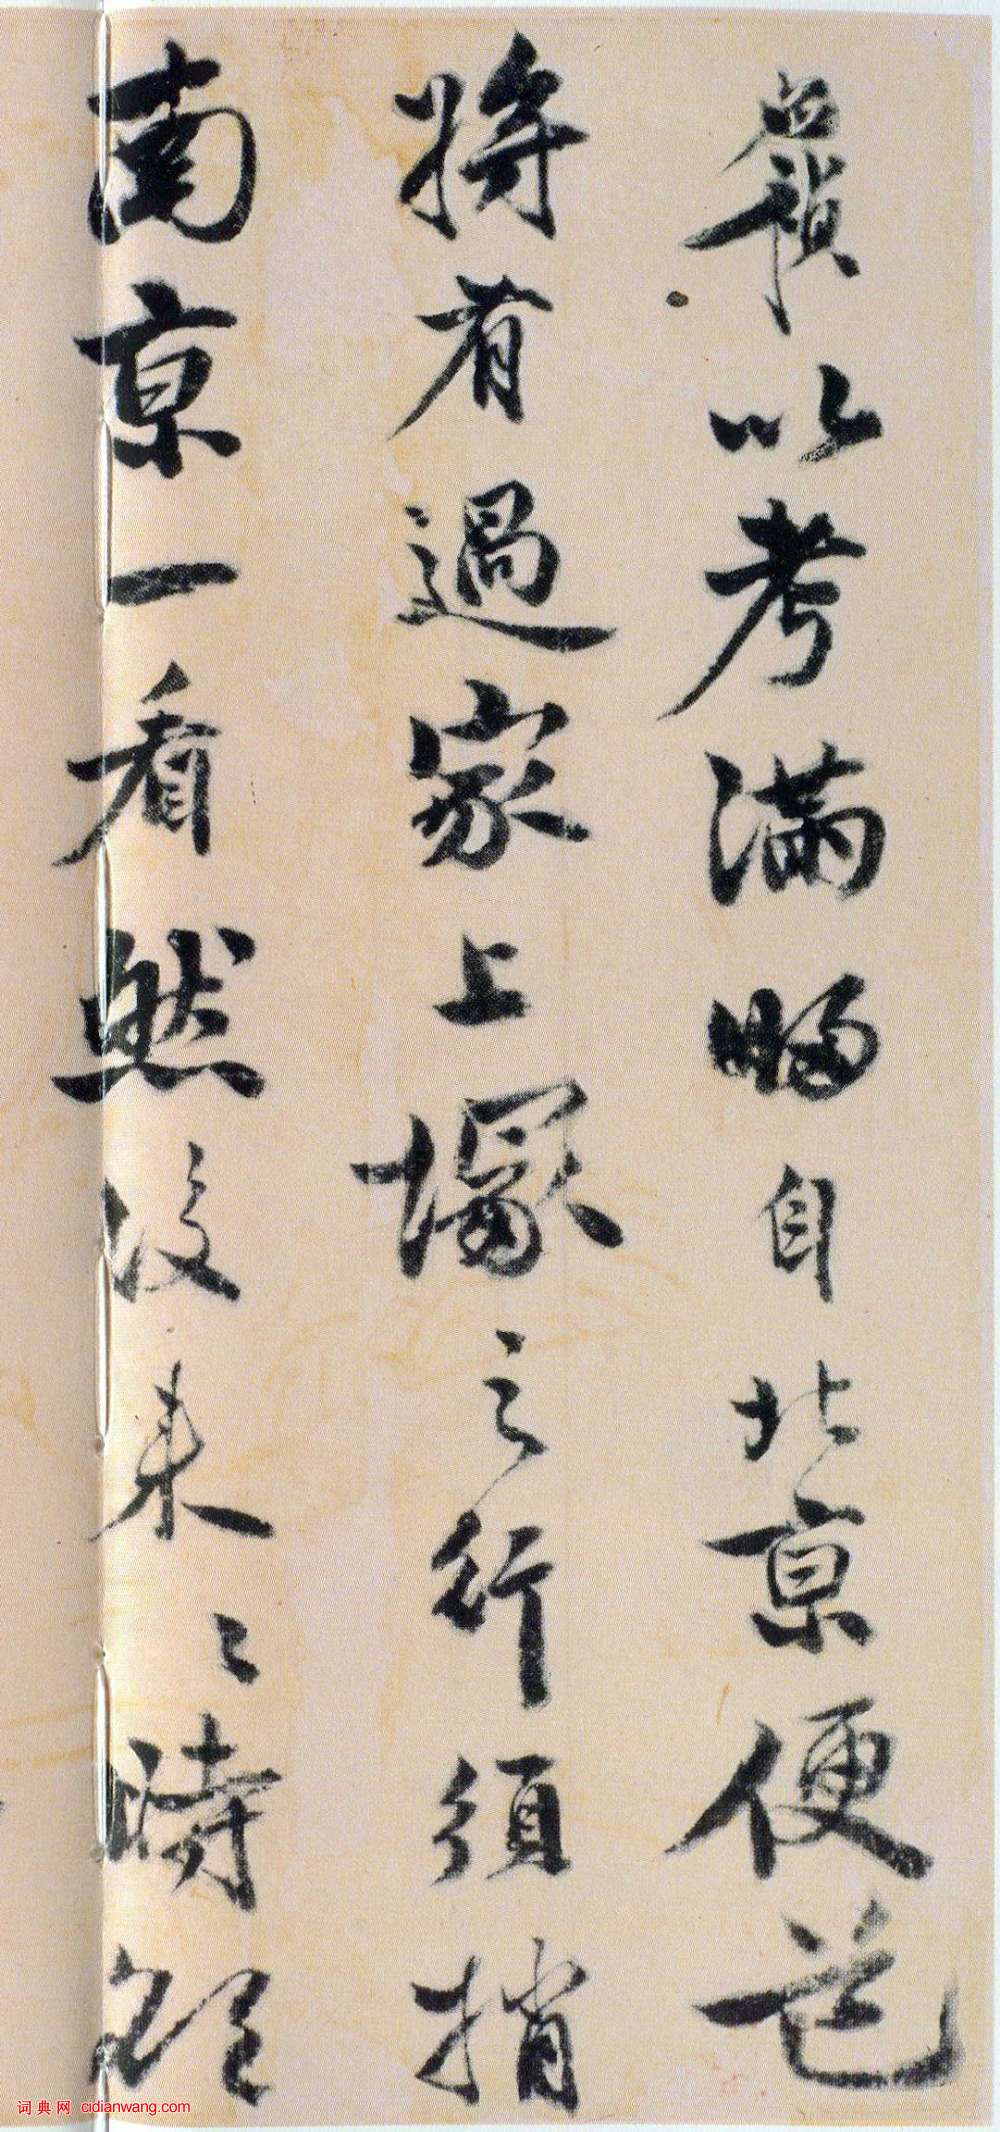 以考滿歸自北京便道
將有過家上塚之行須捎
南京一看然後來〻時
词典网 cidianwang.com